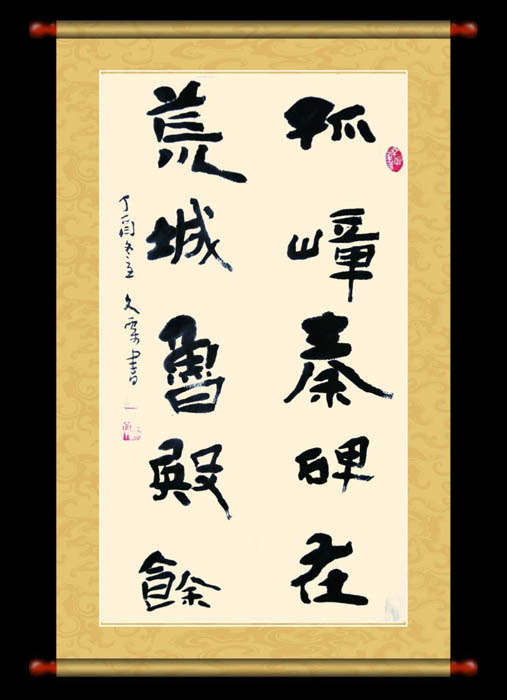 孤嶂秦碑在
荒城魯殿餘
丁酉冬至 書